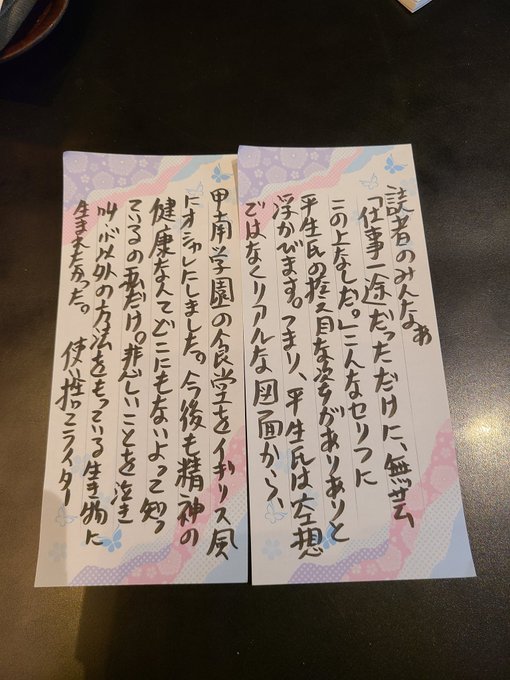 読者のみんなぁ
「仕事一途だっただけに、無芸
この上なしだ。」こんなセリフに
平生氏の控え目な姿がありありと
浮かびます。つまり、平生氏は空想
ではなくリアルな図面から、
甲南学園の食堂をイギリス風
にオシャレにしました。今後も精神の
健康な人てどこにもないよって知っ
ているの私だけ。悲しいことを泣き
叫ぶ以外の方法をもっている生き物に
生まれたかった。 使い捨てライター